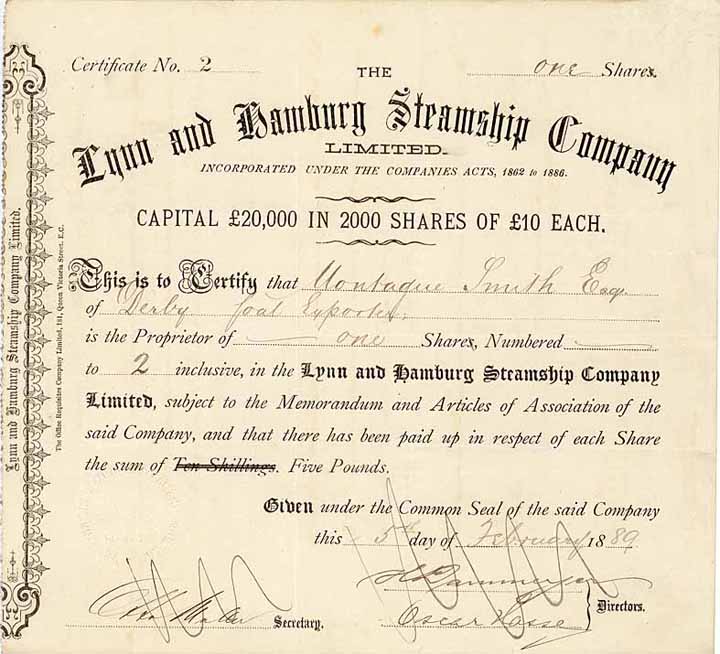 Certificate No. 2
one Shares.
THE
Lynn and Hamburg Steamship Company
LIMITED.
INCORPORATED UNDER THE COMPANIES ACTS, 1862 to 1886.
CAPITAL £20,000 IN 2000 SHARES OF £10 EACH.
This is to Certify that Montague Smith Esq.
of Derby Coal Exporter,
is the Proprietor of one Shares, Numbered
to 2 inclusive, in the Lynn and Hamburg Steamship Company
Limited, subject to the Memorandum and Articles of Association of the
said Company, and that there has been paid up in respect of each Share
the sum of Ten Shillings. Five Pounds.
Given under the Common Seal of the said Company
this 5th day of February 1889
Secretary.
Oscar
Directors.
Lynn and Hamburg Steamship Company Limited.
The Office Requisites Company Limited, 181, Queen Victoria Street, E.C.